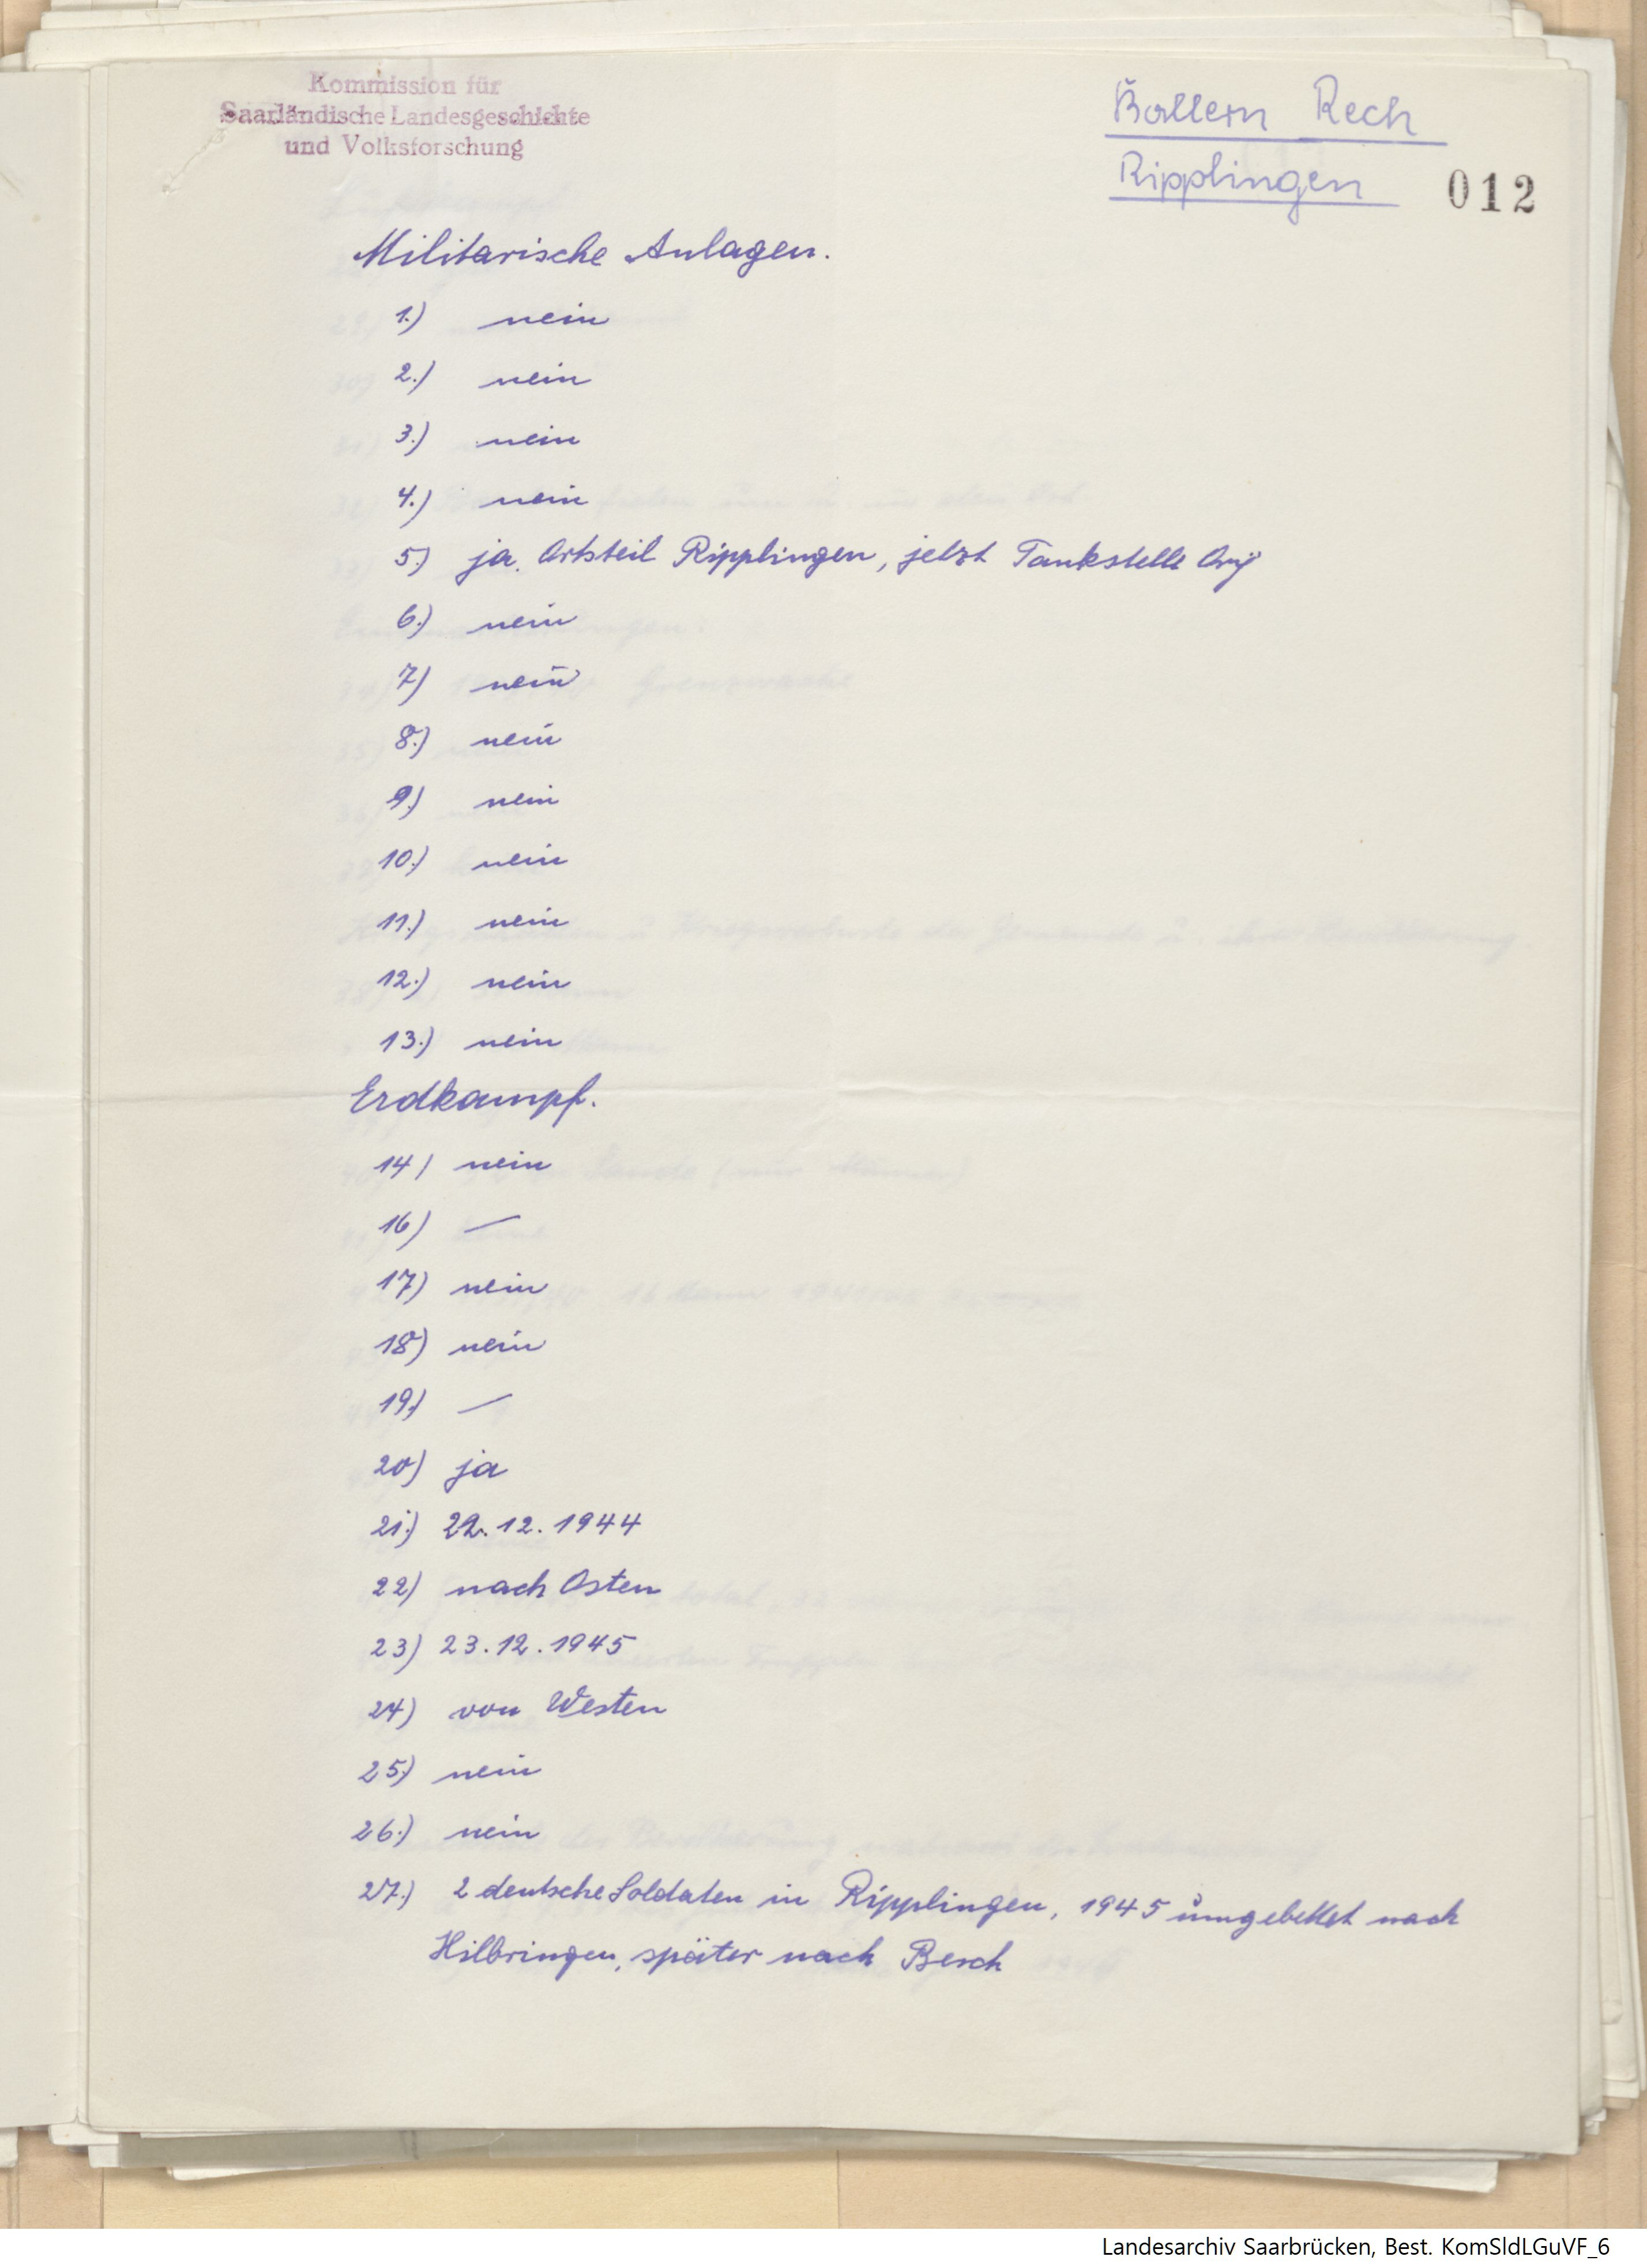 Kommission für
Saarländische Landesgeschichte
und Volksforschung
Ballern Rech
Ripplingen 012
Militarische Anlagen.
1.) nein
2.) nein
3.) nein
4.) nein
5.) ja. Ortsteil Ripplingen, jetzt Tankstelle
6.) nein
7.) nein
8.) nein
9.) nein
10.) nein
11.) nein
12.) nein
13.) nein
Erdkampf.
14) nein
16) —
17) nein
18) nein
19.) —
20) ja
21.) 22.12.1944
22) nach Osten
23) 23.12.1945
24) von Westen
25.) nein
26.) nein
27.) 2 deutsche Soldaten in Ripplingen, 1945 umgebettet nach
Hilbringen, später nach Besch
Landesarchiv Saarbrücken, Best. KomSldLGuVF_6